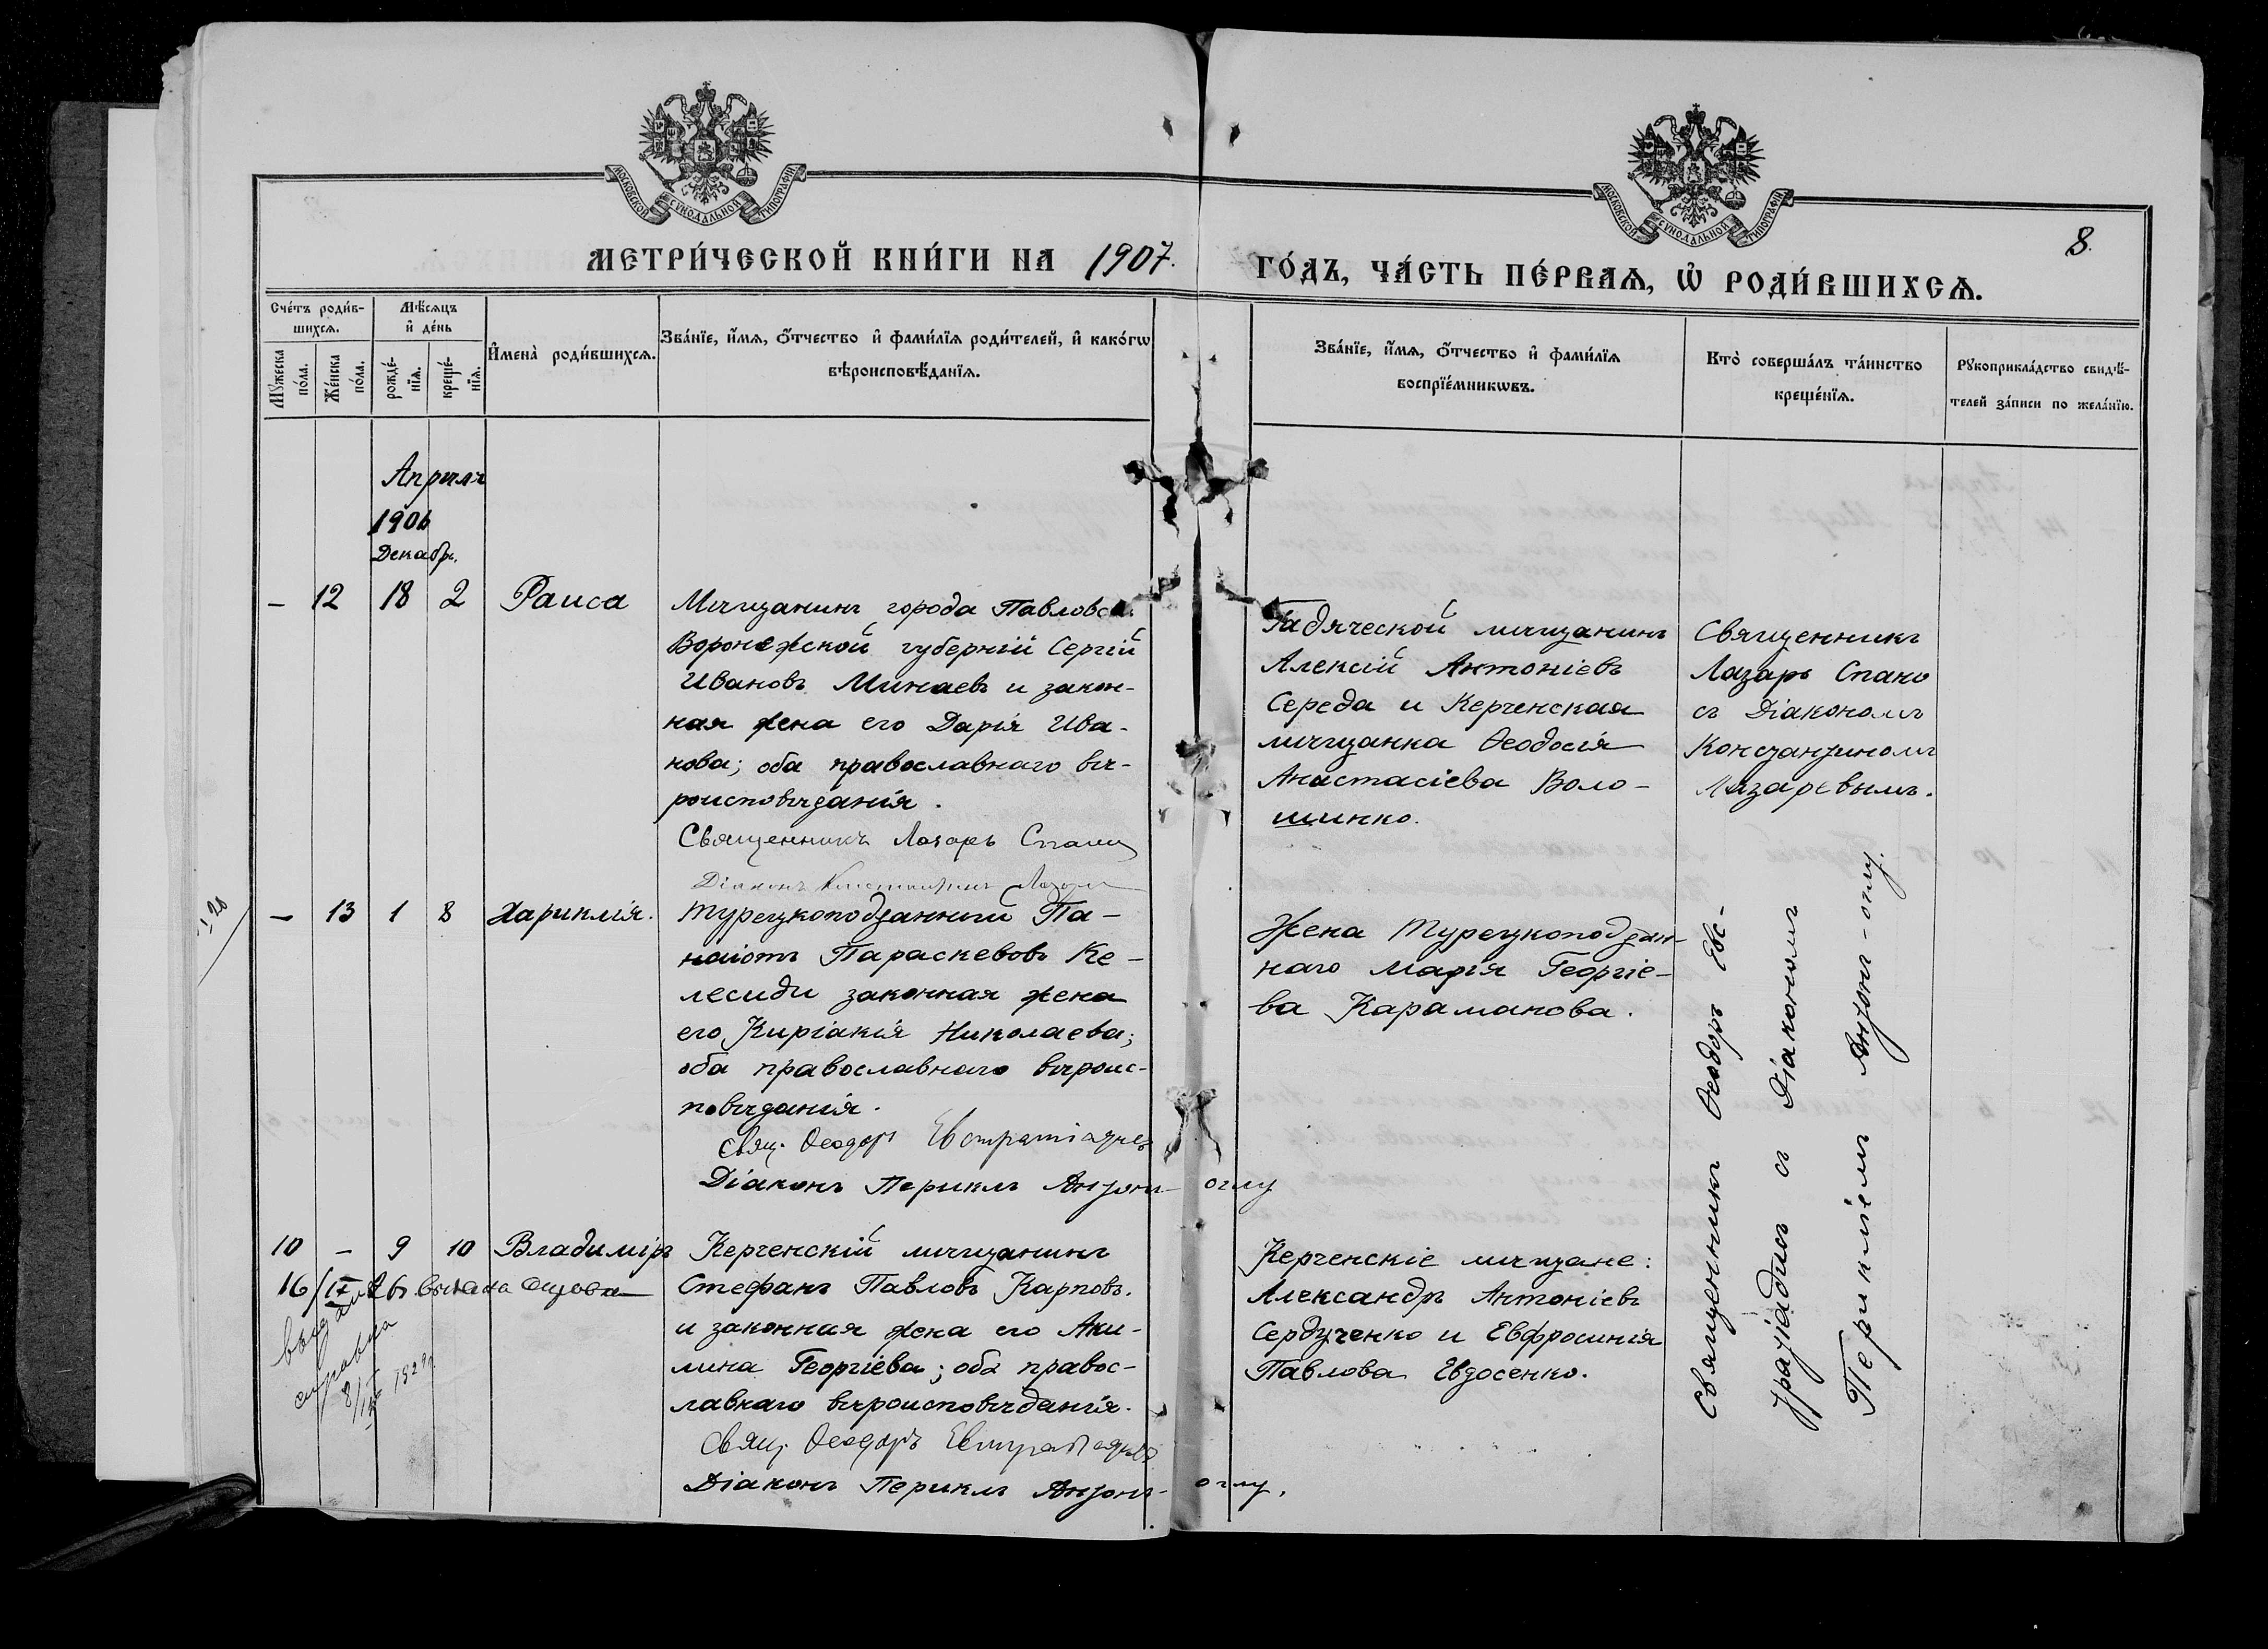 МОСКОВСКОЙ СѴНОДАЛЬНОЙ ТИПОГРАФІИ
МОСКОВСКОЙ СѴНОДАЛЬНОЙ ТИПОГРАФІИ
8.
МЕТРИ́ЧЕСКОЙ КНИ́ГИ НА 1907.
ГО́ДЪ, ЧА́СТЬ ПЕ́РВАѦ, Ѡ҆ РОДИ́ВШИХСѦ.
Сче́тъ роди́в-
шихсѧ.
Мꙋ́жеска
по́ла.
Же́нска
по́ла.
Мѣ́сѧцъ
и҆ де́нь
рожде́-
нїѧ.
креще́-
нїѧ.
И҆мена̀ роди́вшихсѧ.
Зва́нїе, и҆́мѧ, ѻ҆́тчество и҆ фами́лїѧ роди́телей, и҆ како́гѡ
вѣроисповѣ́данїѧ.
Зва́нїе, и҆́мѧ, ѻ҆́тчество и҆ фами́лїѧ
воспрїе́мникѡвъ.
Кто̀ соверша́лъ та́инство
креще́нїѧ.
Рꙋкоприкла́дство свидѣ́-
телей за́писи по жела́нїю.
Апрѣля
1906
Декабр.
— 12 18 2 Раиса
Мѣщанинъ города Павловск.
Воронежской губерніи Сергій
Ивановъ Минаевъ и закон-
ная жена его Дарія Ива-
нова; оба православнаго вѣ-
роисповѣданія.
Священникъ Лазарь Спано
Діаконъ Константинъ
Гадяческой мѣщанинъ
Алексій Антоніевъ
Середа и Керченская
мѣщанка Ѳеодосія
Анастасіева Воло-
шинко.
Священникъ
Лазарь Спано
съ Діакономъ
Константиномъ
Лазаревымъ.
— 13 1 8 Хариклія.
Турецкоподданный Па-
наіотъ Параскевовъ Ке-
лесиди законная жена
его, Киріакія Николаева;
оба православнаго вѣроис-
повѣданія.
Свящ. Ѳеодоръ Евстратіадисъ
Діаконъ Периклъ Антонъ-оглу
Жена Турецкоподдан-
наго Марія Георгіе-
ва Караманова.
Священникъ Ѳеодоръ Евс-
тратіадисъ съ Діакономъ
Перикліемъ Антонъ-оглу.
10 — 9 10 Владиміръ
Керченскій мѣщанинъ
Стефанъ Павловъ Карповъ.
и законная жена его Аки-
лина Георгіева; оба правос-
лавнаго вѣроисповѣданія.
Свящ. Ѳеодоръ Евстратіадисъ
Діаконъ Периклъ Антонъ-оглу.
Керченскіе мѣщане:
Александръ Антоніевъ
Сердученко и Евфросинія
Павлова Евдосенко.
выдана
справка